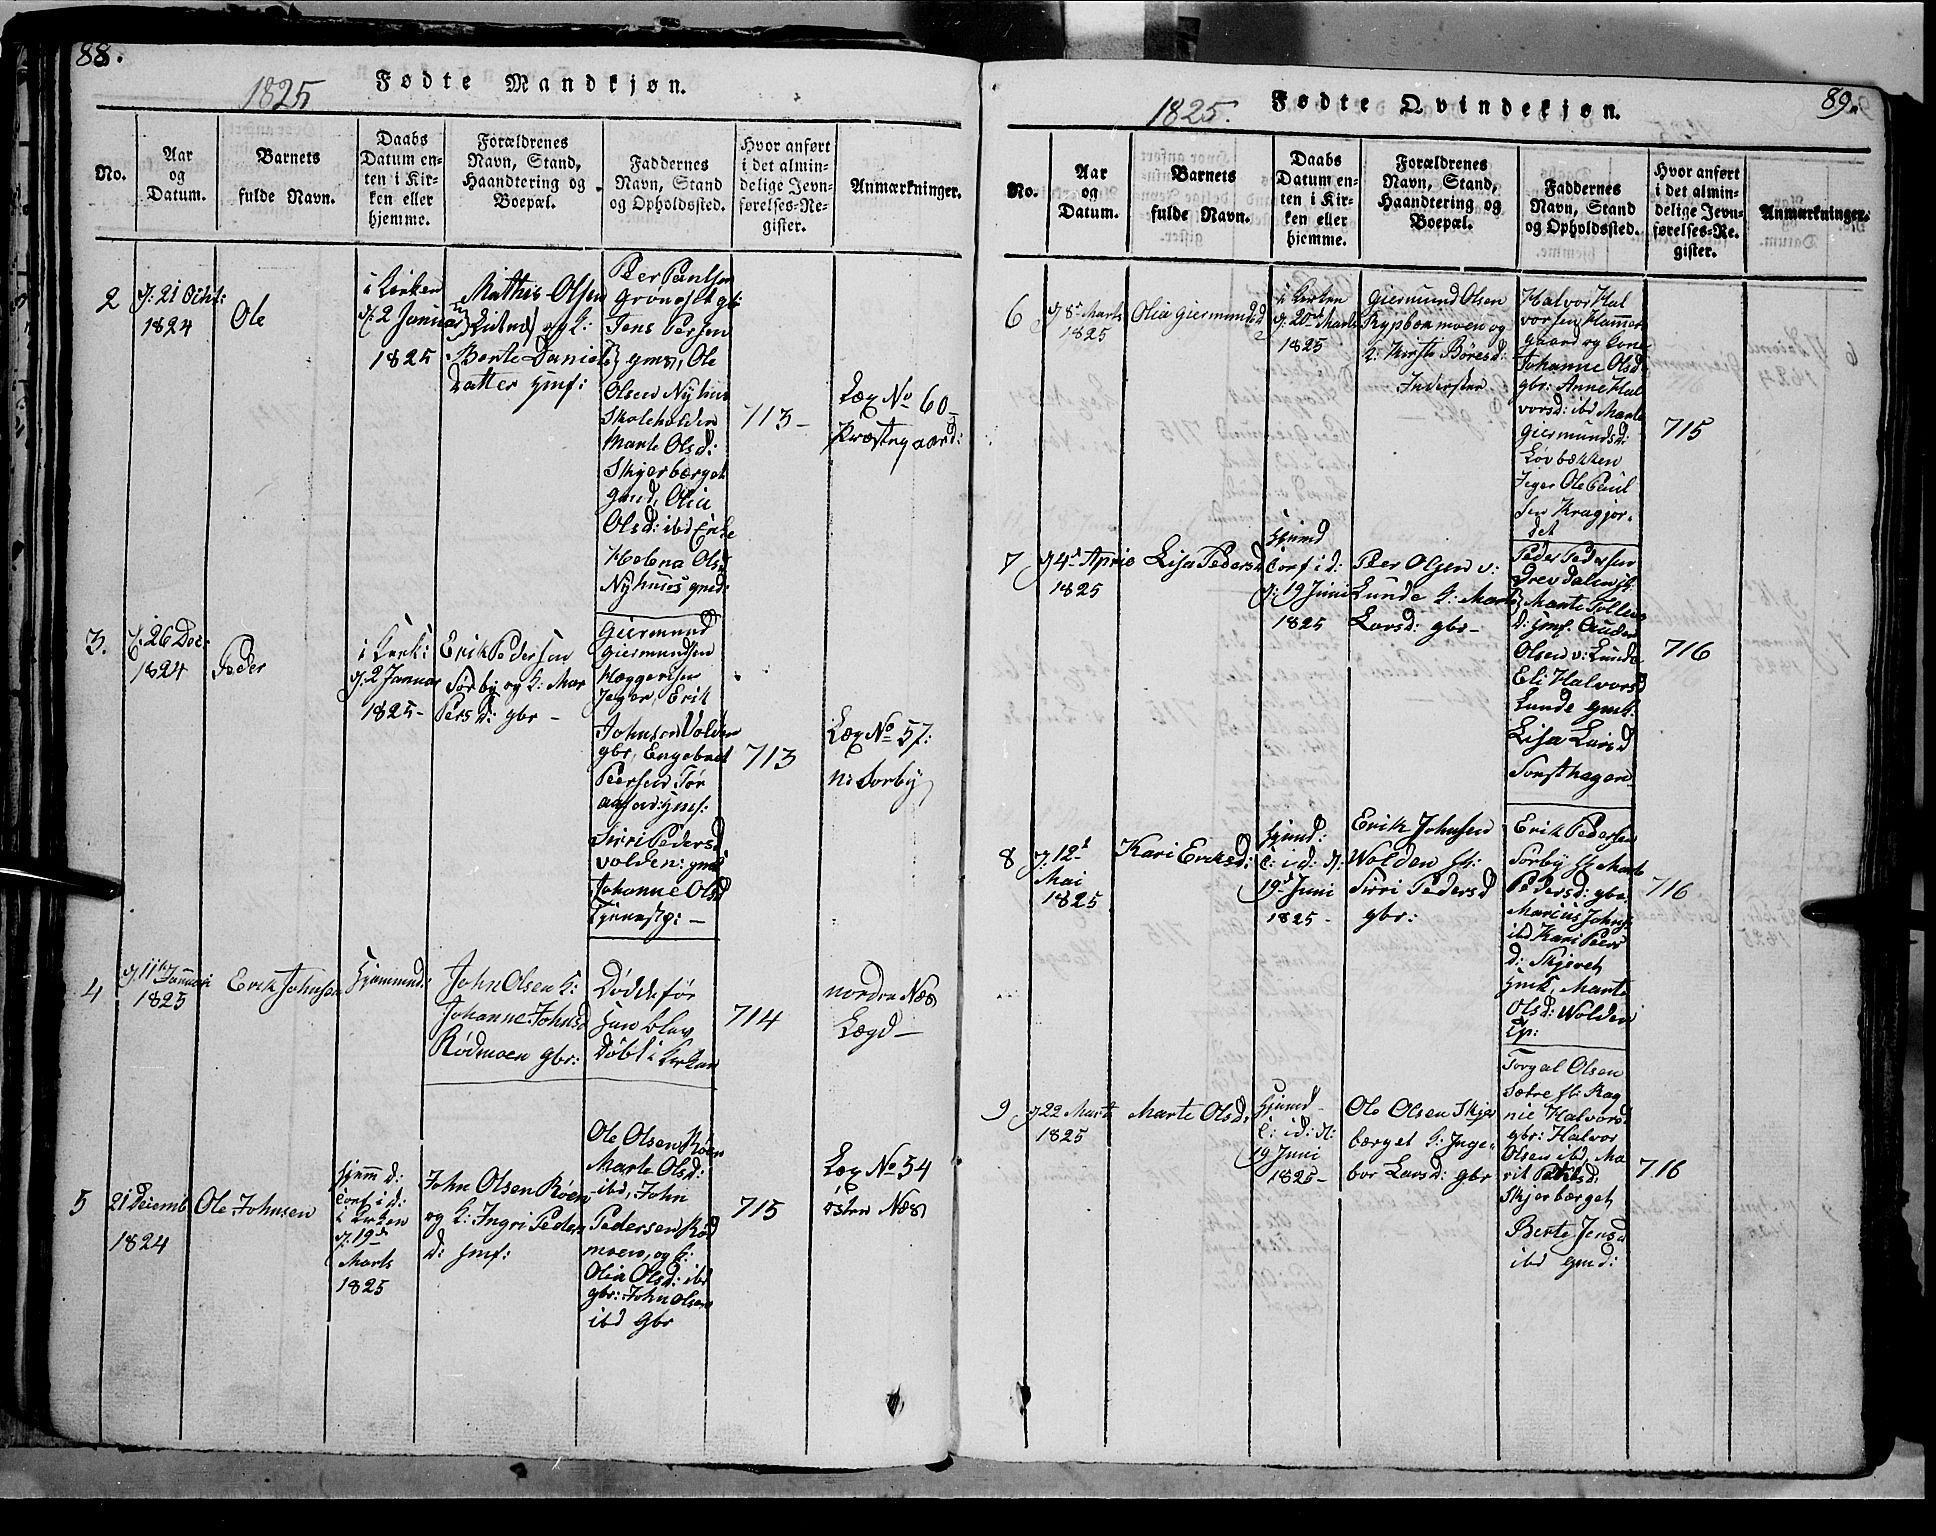 88.
1825 Fødte Mandkjøn.
No.
Aar
og
Datum.
Barnets
fulde Navn.
Daabs
Datum en-
ten i Kir-
ken eller
hjemme.
Forældrenes
Navn, Stand,
Haandtering og
Boepæl.
Faddernes
Navn, Stand
og Opholdssted.
Hvor anført
i det almin-
delige Jevn-
førelses-Re-
gister.
Anmærkninger.
2
1824
Ole
i Kirken
2 Januar
1825
Mathis Olsen
og K:
Berte Daniels
Datter
Jens Persen
Ole
Olsen Nyhus
Skoleholder
Marte Olsd:
Skjerbærget
Olia
Olsd: ibd
Helena Olsd
Nyhuus
713
Læg No 60
Præstegaard:
3.
26 Dec:
1824
Peder
i Kirk:
2 Januar
1825-
Erik Pedersen
Sørby og K: Mar
Persd: gbr-
Giermund
Giermundsen
Jeger, Erik
Johnsen Volden
gbr, Engebret
Peersen
Sirri Pedersd
volden:
Johanne Olsd
713
Læg No 57:
Sorby
4
11te Januari
1825
Erik Johnsen
Hjemmed:
John Olsen K:
Johanne Johnsd
Rødmoen gbr:
Døde før
han blev
Døbt i Kirken
714
nordre Næs
Lægd-
5
21 Decemb
1824
Ole Johnsen
Hjemd:
Conf id:
i Kirken
19de
Marts
1825
John Olsen Røen
og K: Ingri Peders
d:
Ole Olsen Røen
Marte Olsd:
ibd, John
Pedersen Rød
moen, og K:
Olia Olsd: ibd
gbr: John Olsen
ibd gbr
715
Læg No 54
østre Næs
89.
1825. Fødte Qvindekjøn.
No.
Aar
og
Datum.
Barnets
fulde Navn.
Daabs
Datum en-
ten i Kir-
ken eller
hjemme.
Forældrenes
Navn, Stand,
Haandtering og
Boepæl.
Faddernes
Navn, Stand
og Opholdssted.
Hvor anført
i det almin-
delige Jevn-
førelses-Re-
gister.
Anmærkninger.
6
8de Marts
1825
Olia Giermundsd
i Kirken
20de Marts
1825
Giermund Olsen
og
K: Kirsti
Halvor Hal
vorsen Hammer
gaard og Kone
Johanne Olsd
gbr: Anne Hal
vorsd: ibd Marte
Giermundsd:
Løvbækken
Jeger Ole Paul
sen Kragjor-
det
715
7
4de April
1825
Lisa Pedersd
Hjemd
Conf id:
19 Juni
1825
Peer Olsen v:
Lunde K: Marte
Larsd: gbr-
Peder Pedersen
Marte Tollevs
d:
Olsen v: Lunde
Eli Halvorsd
Lunde
Lisa Larsd
716
8
12te
Mai
1825
Kari Eriksd:
Hjemd:
C: id:
19de Juni
1825-
Erik Johnsen
Wolden K:
Sirri Pedersd
gbr:
Erik Pedersen
Sørby K: Marte
Pedersd: gbr.
Marius Johns:
ibd Kari Peers
d:
Marte
Olsd: Wolden
716
9
22 Marts
1825
Marte Olsd:
Hjemd
C: id:
19 Juni
1825-
Ole Olsen Skjer
bærget K: Inge-
bor Larsd: gbr
Torgal Olsen
Sætre K: Rag
nie Halvorsd
gbr: Halvor
Olsen ibd, Ma
rit Pedersd:
Skjerbærget,
Berte Jensd
ibd
716